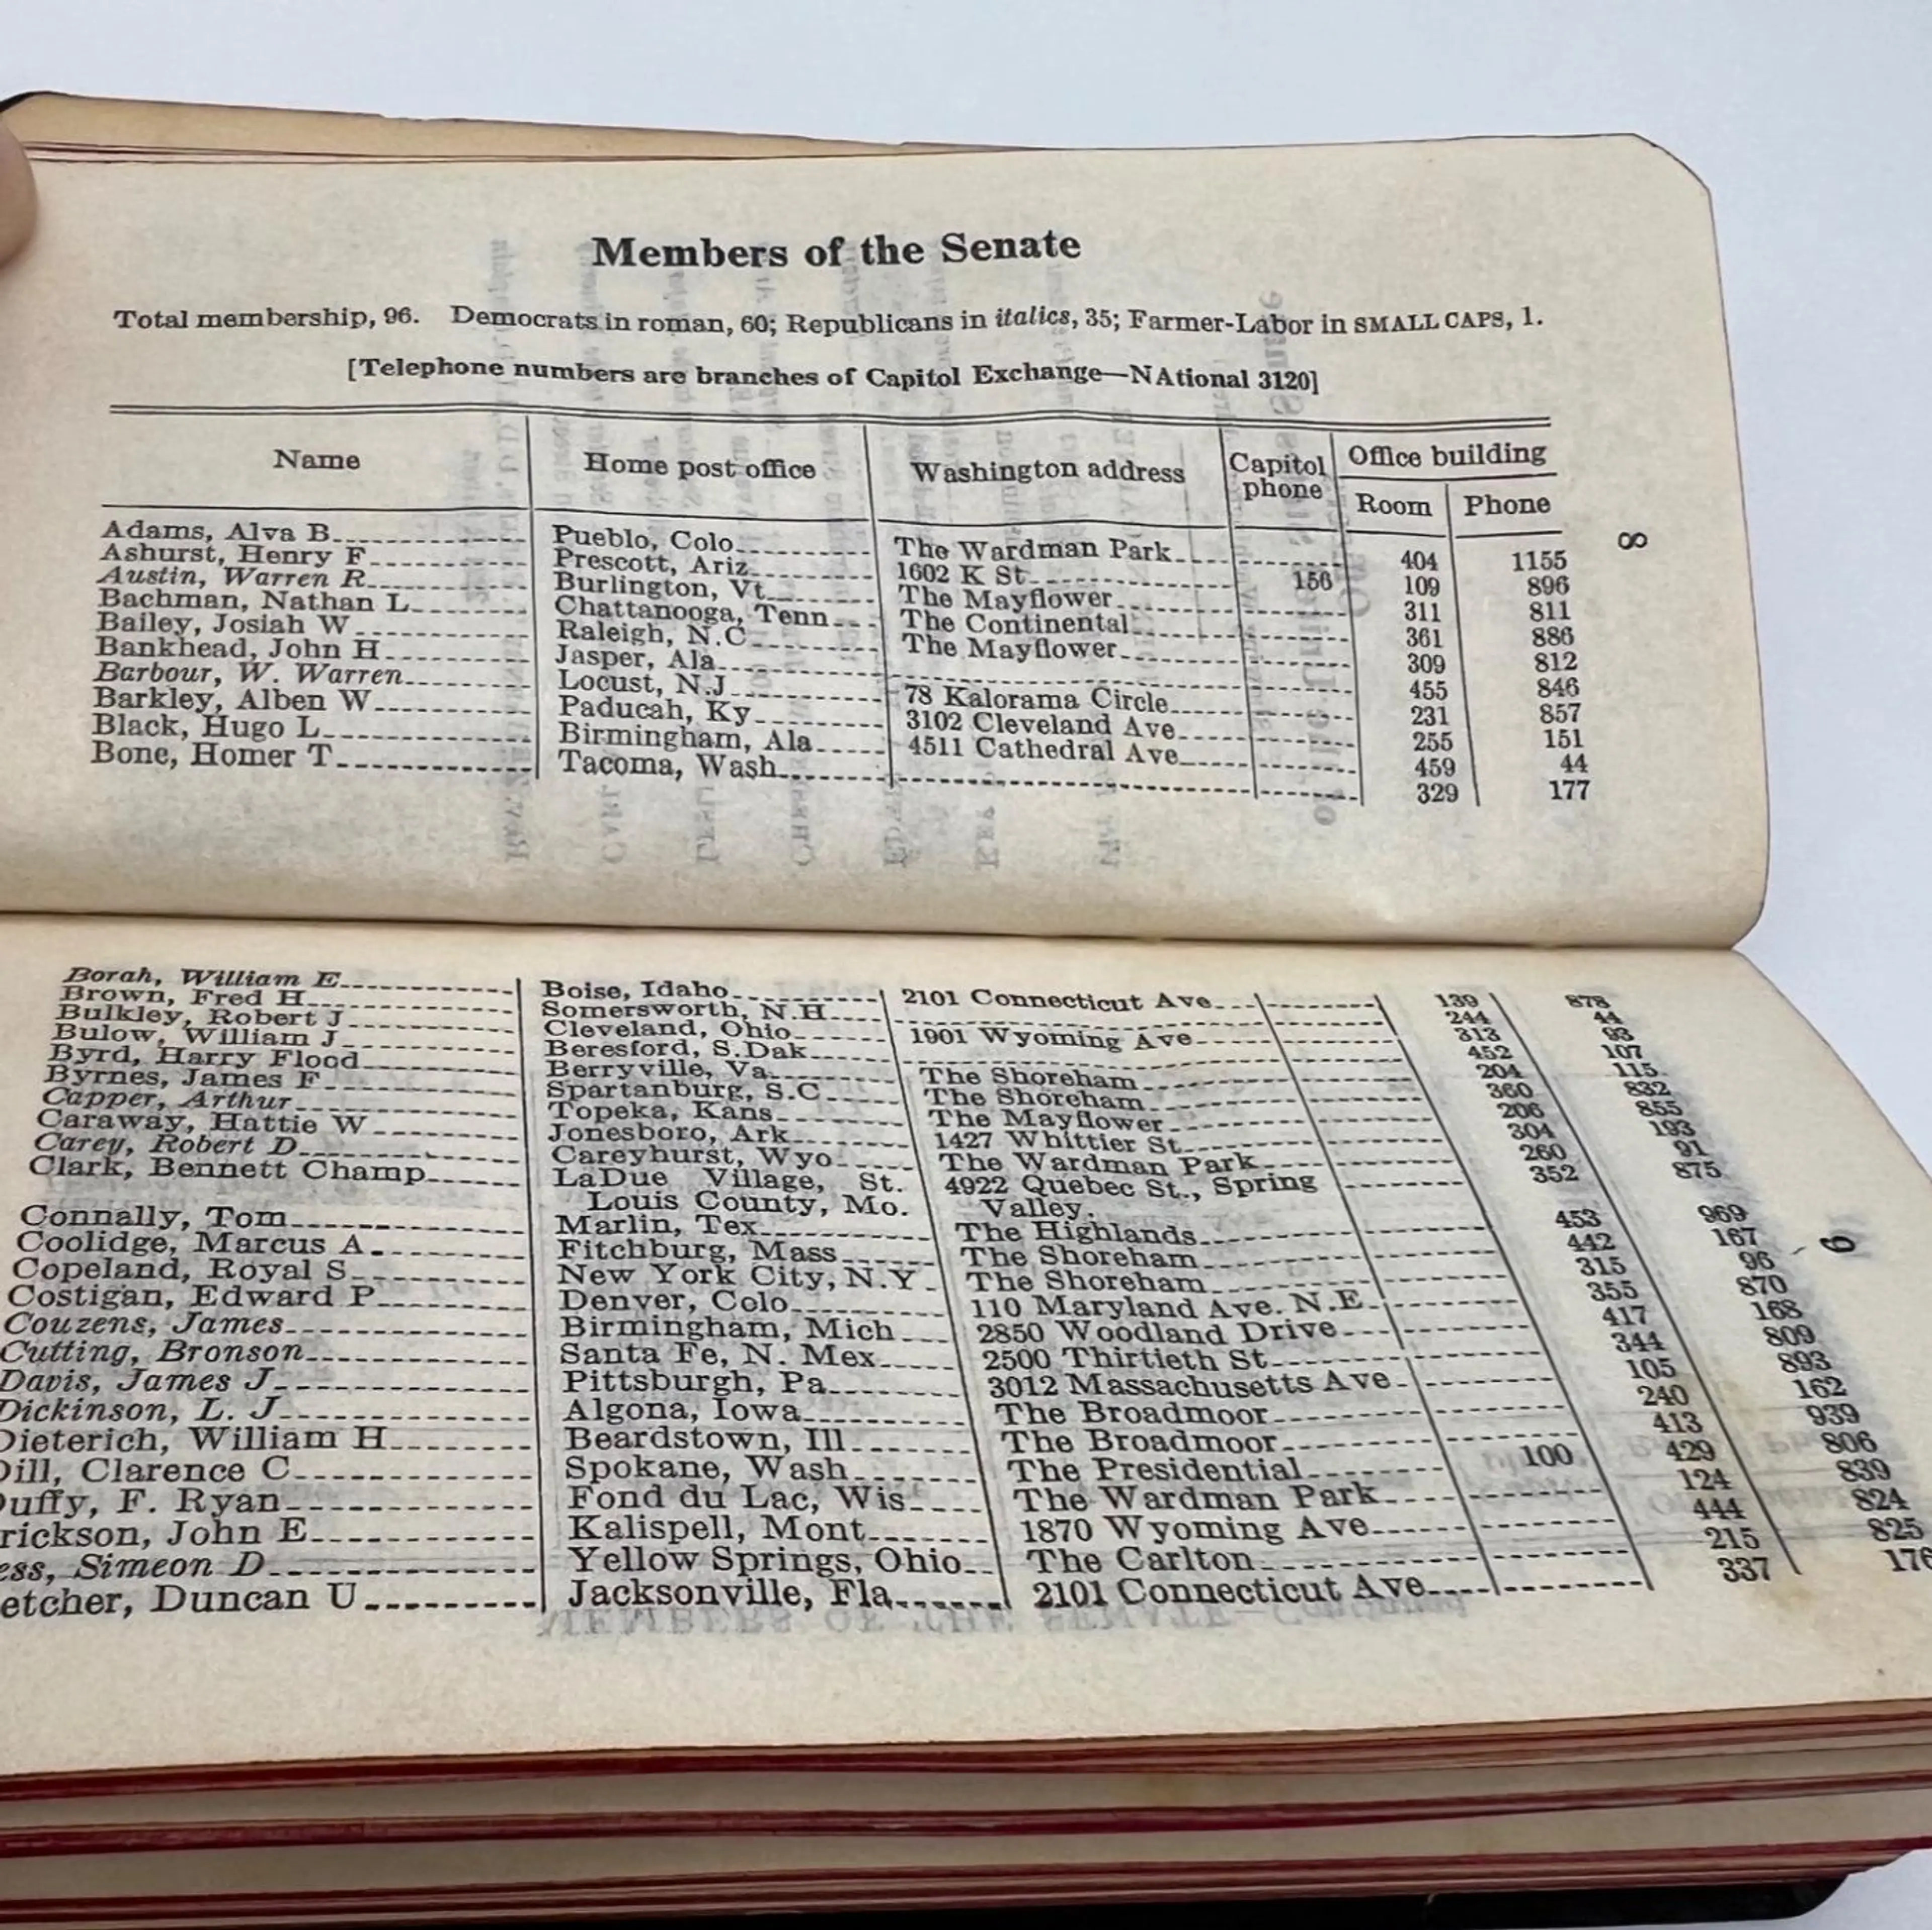 Members of the Senate
Total membership, 96. Democrats in roman, 60; Republicans in italics, 35; Farmer-Labor in SMALL CAPS, 1.
[Telephone numbers are branches of Capitol Exchange—NAtional 3120]
Name Home post office Washington address Capitol phone Office building
Room Phone
Adams, Alva B Pueblo, Colo The Wardman Park 404 1155
Ashurst, Henry F Prescott, Ariz 1602 K St 156 109 896
Austin, Warren R Burlington, Vt The Mayflower 311 811
Bachman, Nathan L Chattanooga, Tenn The Continental 361 886
Bailey, Josiah W Raleigh, N.C The Mayflower 309 812
Bankhead, John H Jasper, Ala 455 846
Barbour, W. Warren Locust, N.J 78 Kalorama Circle 231 857
Barkley, Alben W Paducah, Ky 3102 Cleveland Ave 255 151
Black, Hugo L Birmingham, Ala 4511 Cathedral Ave 459 44
Bone, Homer T Tacoma, Wash 329 177
8
Borah, William E Boise, Idaho 2101 Connecticut Ave 139 878
Brown, Fred H Somersworth, N.H 244 44
Bulkley, Robert J Cleveland, Ohio 1901 Wyoming Ave 313 93
Bulow, William J Beresford, S.Dak 452 107
Byrd, Harry Flood Berryville, Va The Shoreham 204 115
Byrnes, James F Spartanburg, S.C The Shoreham 360 832
Capper, Arthur Topeka, Kans The Mayflower 206 855
Caraway, Hattie W Jonesboro, Ark 1427 Whittier St 304 193
Carey, Robert D Careyhurst, Wyo The Wardman Park 260 91
Clark, Bennett Champ LaDue Village, St. 4922 Quebec St., Spring 352 875
Louis County, Mo. Valley.
Connally, Tom Marlin, Tex The Highlands 453 969
Coolidge, Marcus A Fitchburg, Mass The Shoreham 442 167
Copeland, Royal S New York City, N.Y The Shoreham 315 96
Costigan, Edward P Denver, Colo 110 Maryland Ave. N.E 355 870
Couzens, James Birmingham, Mich 2850 Woodland Drive 417 168
Cutting, Bronson Santa Fe, N. Mex 2500 Thirtieth St 344 809
Davis, James J Pittsburgh, Pa 3012 Massachusetts Ave 105 893
Dickinson, L. J Algona, Iowa The Broadmoor 240 162
Dieterich, William H Beardstown, Ill The Broadmoor 413 939
Dill, Clarence C Spokane, Wash The Presidential 100 429 806
uffy, F. Ryan Fond du Lac, Wis The Wardman Park 124 839
rickson, John E Kalispell, Mont 1870 Wyoming Ave 444 824
ess, Simeon D Yellow Springs, Ohio The Carlton 215 825
etcher, Duncan U Jacksonville, Fla 2101 Connecticut Ave 337 176
9